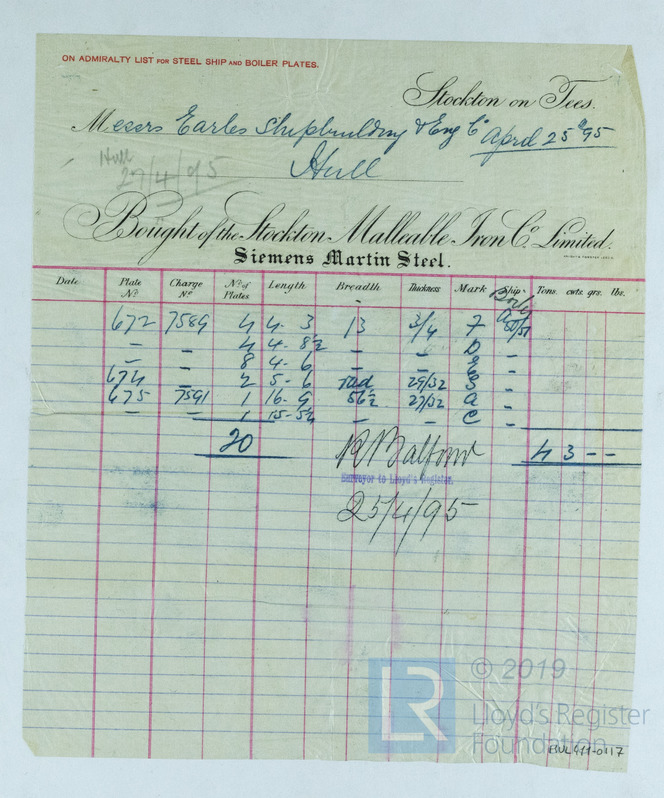 ON ADMIRALTY LIST FOR STEEL SHIP AND BOILER PLATES.
Stockton on Tees.
Messrs Earles Shipbuilding & Eng Co April 25th 95
Hull
Hull
27/4/95
Bought of the Stockton Malleable Iron Co. Limited.
Siemens Martin Steel.
Date Plate No. Charge No. No. of Plates Length Breadth Thickness Mark Ship Tons. cwts. qrs. lbs.
672 7589 4 4-3 13 3/4 F
– – 4 4-8½ – – D –
– – 8 4-6 – – –
674 – 2 5-6 rad 29/32 –
675 7591 1 16-9 56½ 27/32 A –
– – 1 15-5½ – – C –
20 4 3 – –
R Balfour
Surveyor to Lloyd's Register.
25/4/95
© 2019
LR
Lloyd's Register
Foundation
HUL411-0117